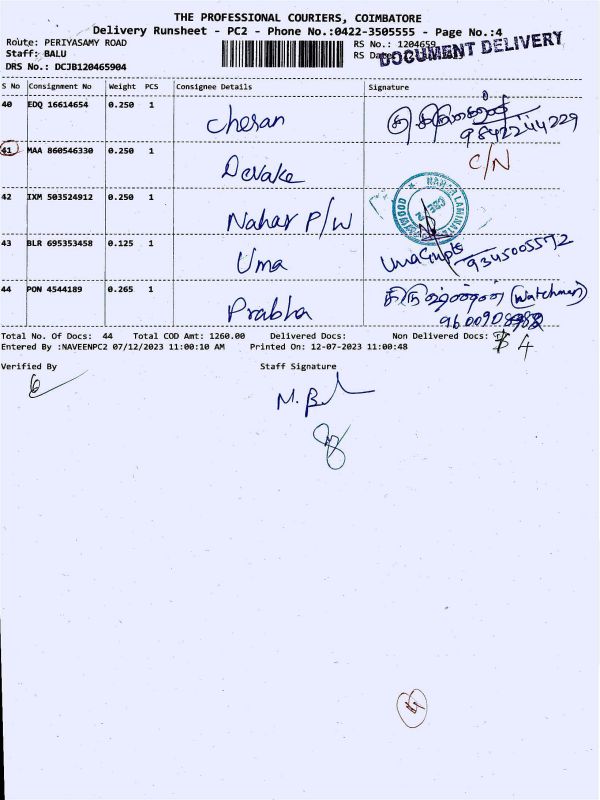 THE PROFESSIONAL COURIERS, COIMBATORE
Delivery Runsheet - PC2 - Phone No.:0422-3505555 - Page No.:4
Route: PERIYASAMY ROAD
RS No.: 1204659
Staff: BALU
RS Da
DOCUMENT DELIVERY
DRS No.: DCJB120465904
S No Consignment No Weight PCS Consignee Details Signature
40 EDQ 16614654 0.250 1 Cheran
9842244229
41 MAA 860546330 0.250 1 Devake C/N
42 IXM 503524912 0.250 1 Nahar P/W
NAHAR LAMINATE
WOOD
43 BLR 695353458 0.125 1 Uma Uma Gupta
9345005572
44 PON 4544189 0.265 1 Prabha (Watchman)
Total No. Of Docs: 44 Total COD Amt: 1260.00 Delivered Docs: Non Delivered Docs: 4
Entered By :NAVEENPC2 07/12/2023 11:00:10 AM Printed On: 12-07-2023 11:00:48
Verified By Staff Signature
M. B